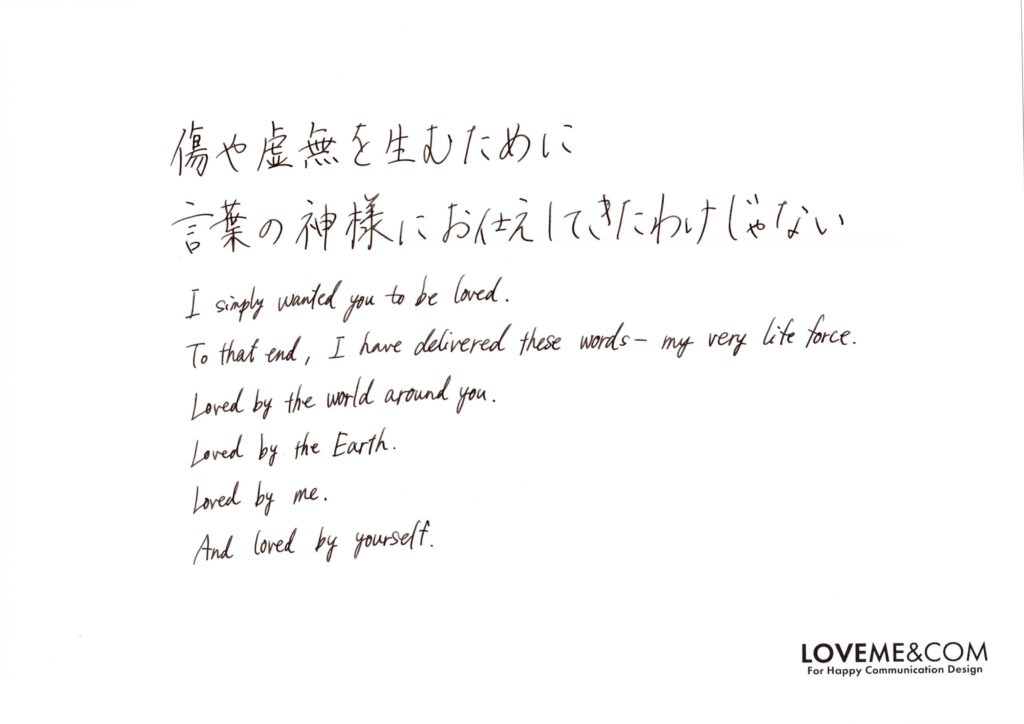 傷や虚無を生むために
言葉の神様にお仕えしてきたわけじゃない
I simply wanted you to be loved.
To that end, I have delivered these words – my very life force.
Loved by the world around you.
Loved by the Earth.
Loved by me.
And loved by yourself.
LOVEME&COM
For Happy Communication Design